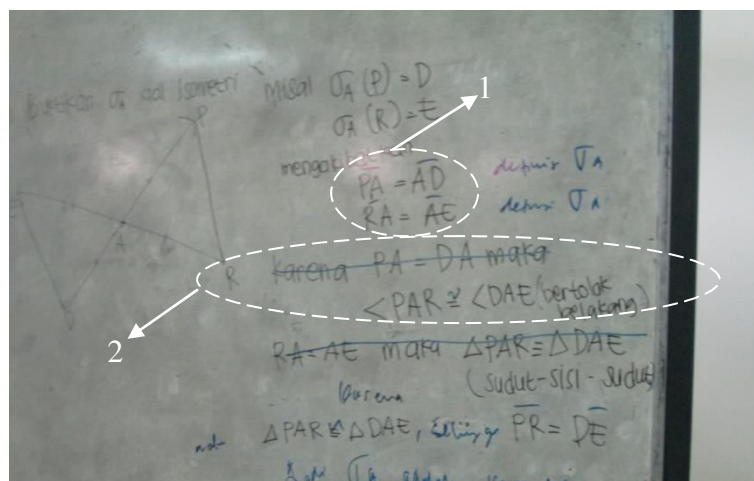 buktikan σA adl isometri
misal σA (P) = D
σA (R) = E
P
A
R
1
2
PA = AD definisi σA
RA = AE definisi σA
karena PA = DA maka
<PAR ≅ <DAE (bertolak
belakang)
RA = AE maka △PAR ≡ △DAE
(sudut-sisi-sudut)
karena
△PAR ≅ △DAE, sehingga PR = DE